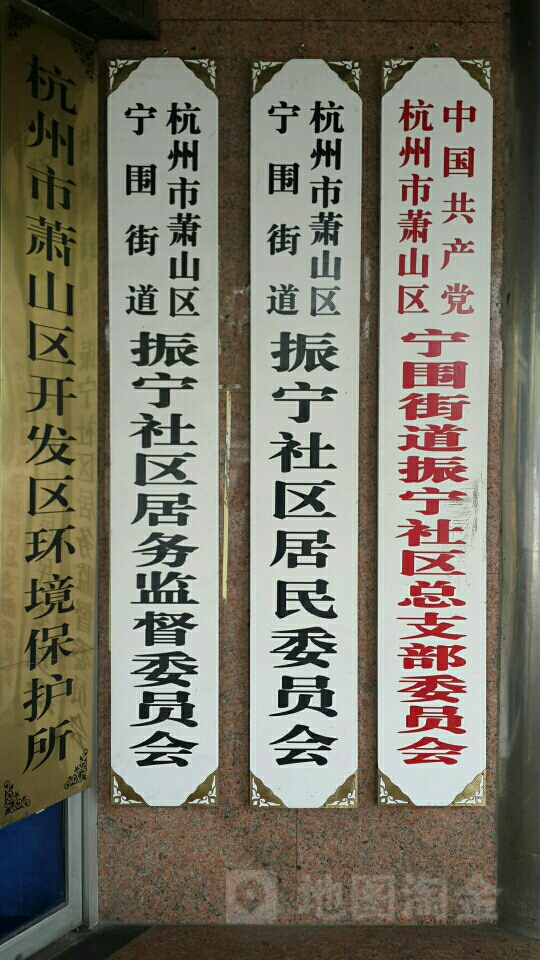 中国共产党
杭州市萧山区
宁围街道振宁社区总支部委员会
杭州市萧山区
宁围街道
振宁社区居民委员会
杭州市萧山区
宁围街道
振宁社区居务监督委员会
杭州市萧山区开发区环境保护所
地图淘金